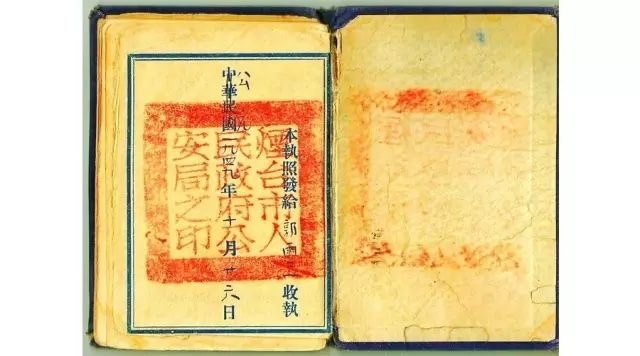 本執照發給郭收執
煙台市人
民政府公
安局之印
公元
中華民國一九四九年十月廿六日